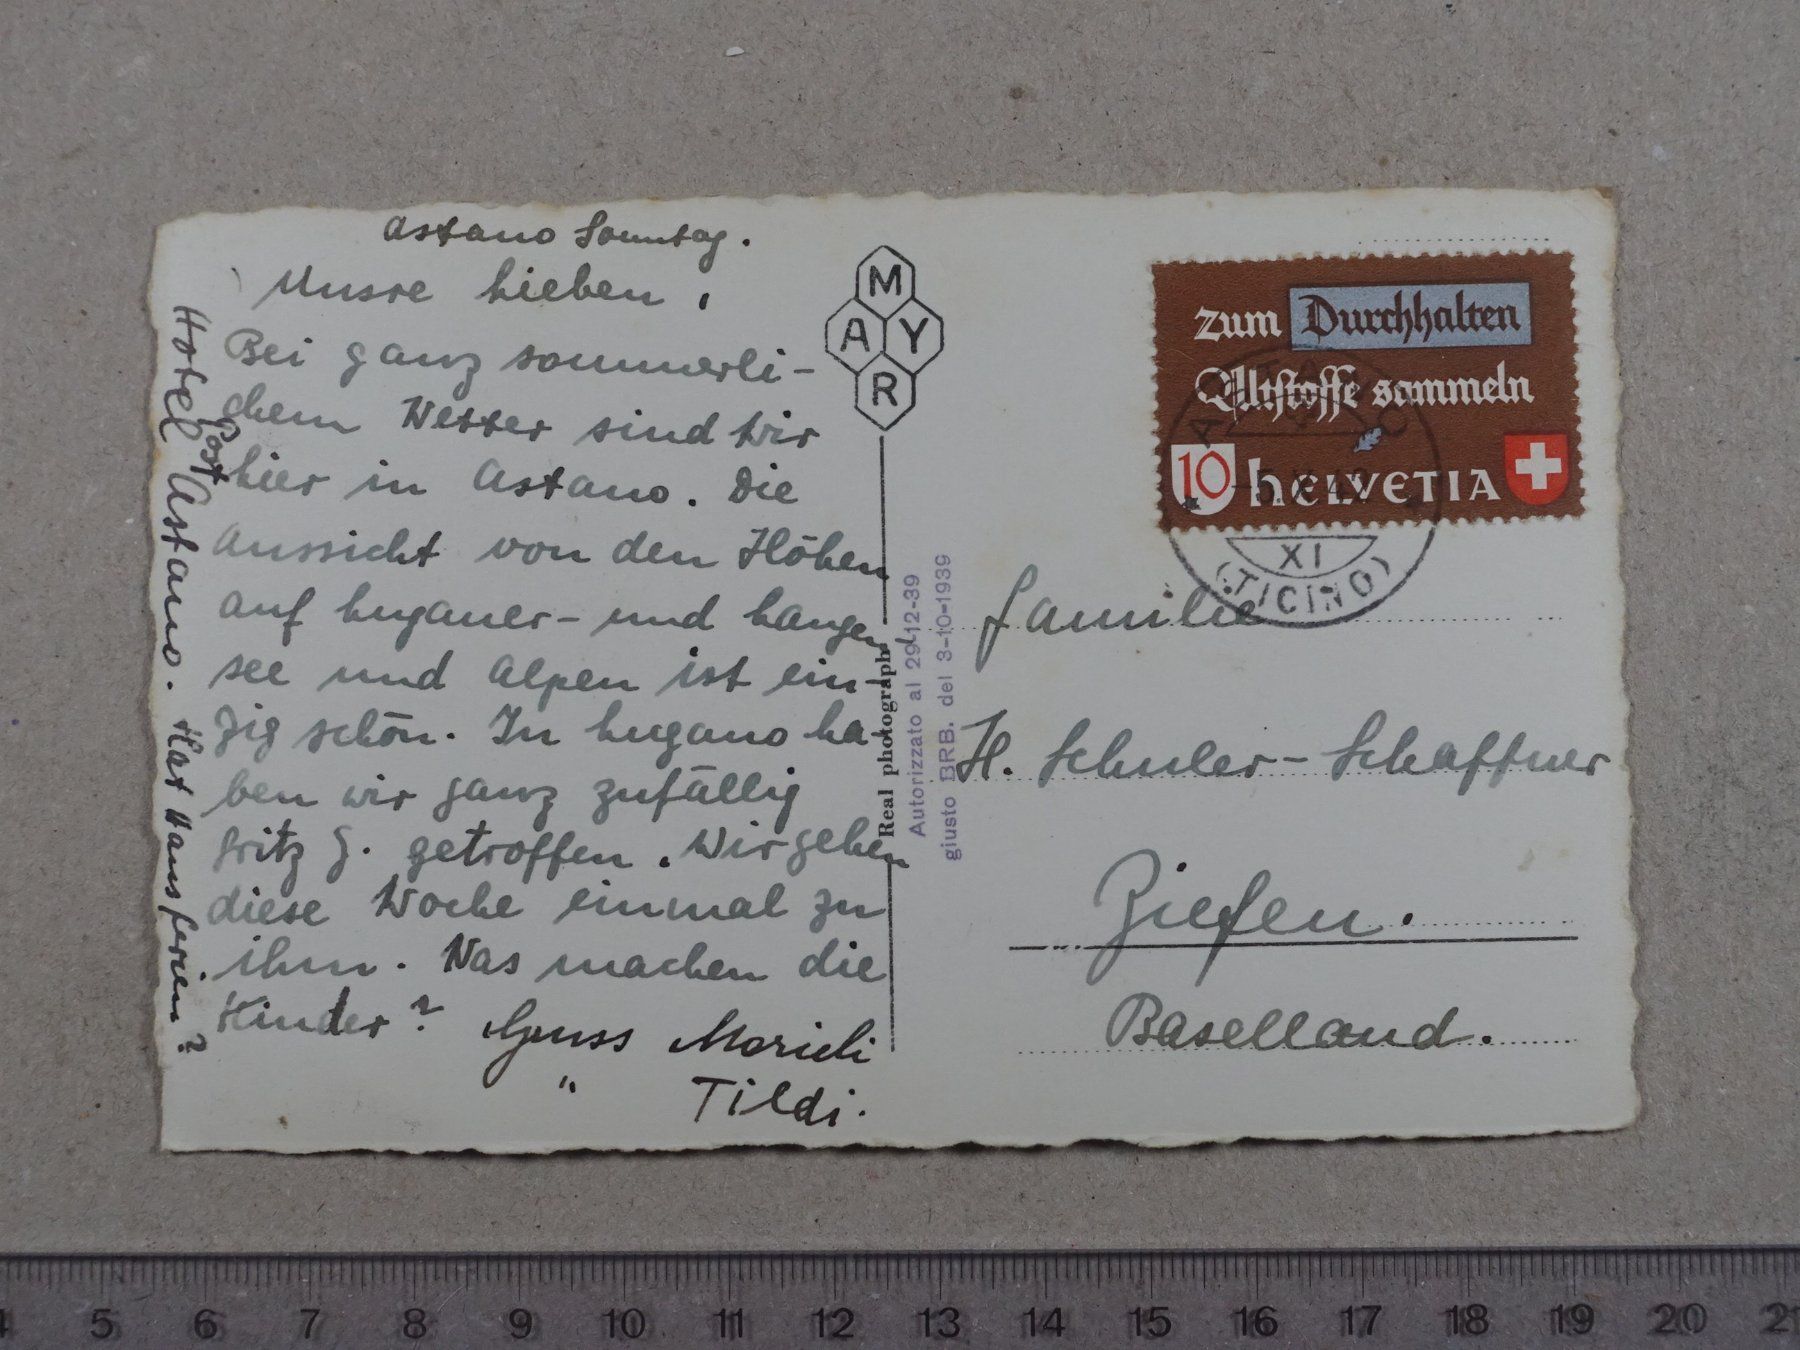 Astano Sonntag.
Unsre Lieben,
Bei ganz sommerli-
chem Wetter sind wir
hier in Astano. Die
Aussicht von den Höhen
auf Luganer- und Langen-
see und Alpen ist ein-
zig schön. In Lugano ha-
ben wir ganz zufällig
Fritz G. getroffen. Wir gehen
diese Woche einmal zu
ihm. Was machen die
Kinder? Gruss Marieli
" Tildi.
Hotel Post Astano. Hat Hans Ferien?
M
A Y
R
Real photograph
Autorizzato al 29-12-39
giusto BRB. del 3-10-1939
zum Durchhalten
Altstoffe sammeln
10 HELVETIA
XI
(TICINO)
Familie
H. Schuler-Schaffner
Ziefen.
Baselland.
4 5 6 7 8 9 10 11 12 13 14 15 16 17 18 19 20 21